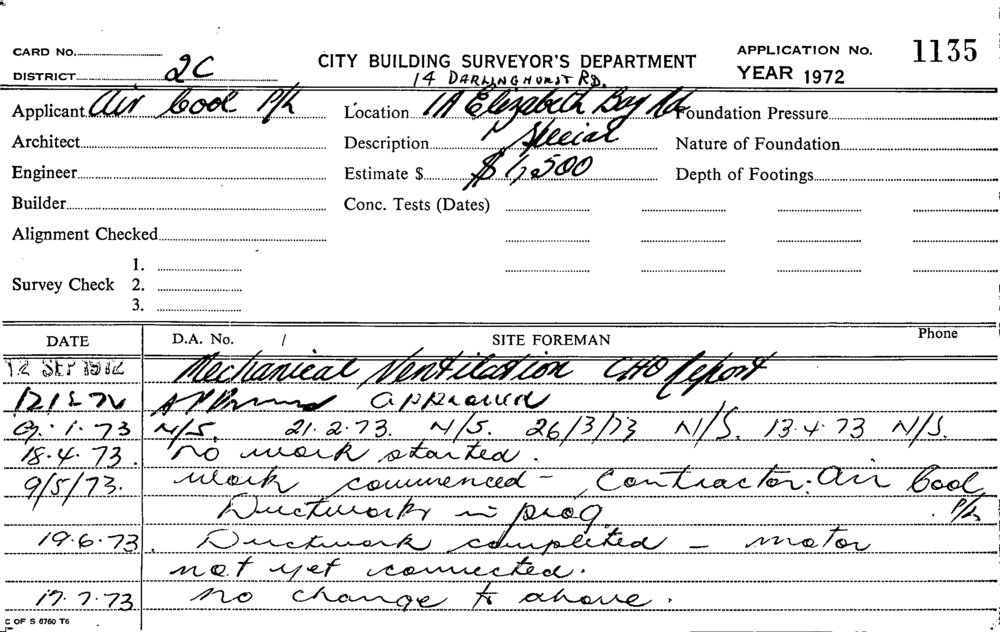 CARD No.
CITY BUILDING SURVEYOR'S DEPARTMENT
APPLICATION No. 1135
DISTRICT 2C
14 DARLINGHURST RD.
YEAR 1972
Applicant Air Cool P/L
Location 1A Elizabeth Bay Rd
Foundation Pressure
Architect
Description Special
Nature of Foundation
Engineer
Estimate $ $1,500
Depth of Footings
Builder
Conc. Tests (Dates)
Alignment Checked
Survey Check
1.
2.
3.
DATE
D.A. No. /
SITE FOREMAN
Phone
12 SEP 1972 Mechanical Ventilation CHO Report
approved
1.73 N/S. 21.2.73. N/S. 26/3/73 N/S. 13.4.73 N/S.
18.4.73. no work started.
9/5/73. work commenced - Contractor: Air Cool P/L
Ductwork in prog.
19.6.73. Ductwork completed - motor
not yet connected.
17.7.73 no change to above.
C OF S 6760 T6